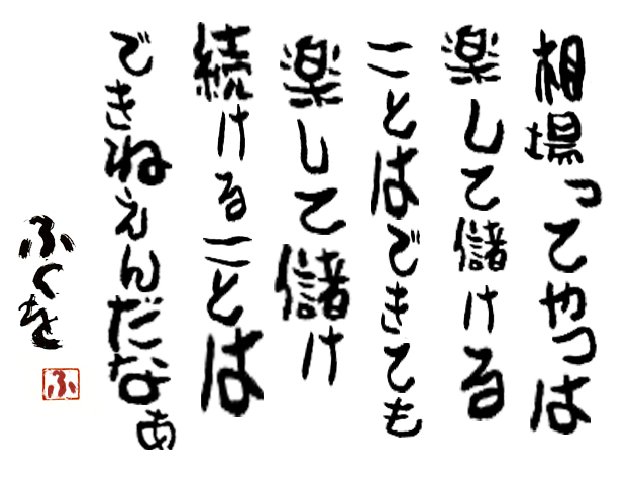 相場ってやつは
楽して儲ける
ことはできても
楽して儲け
続けることは
できねぇんだなぁ
ふくを
ふ